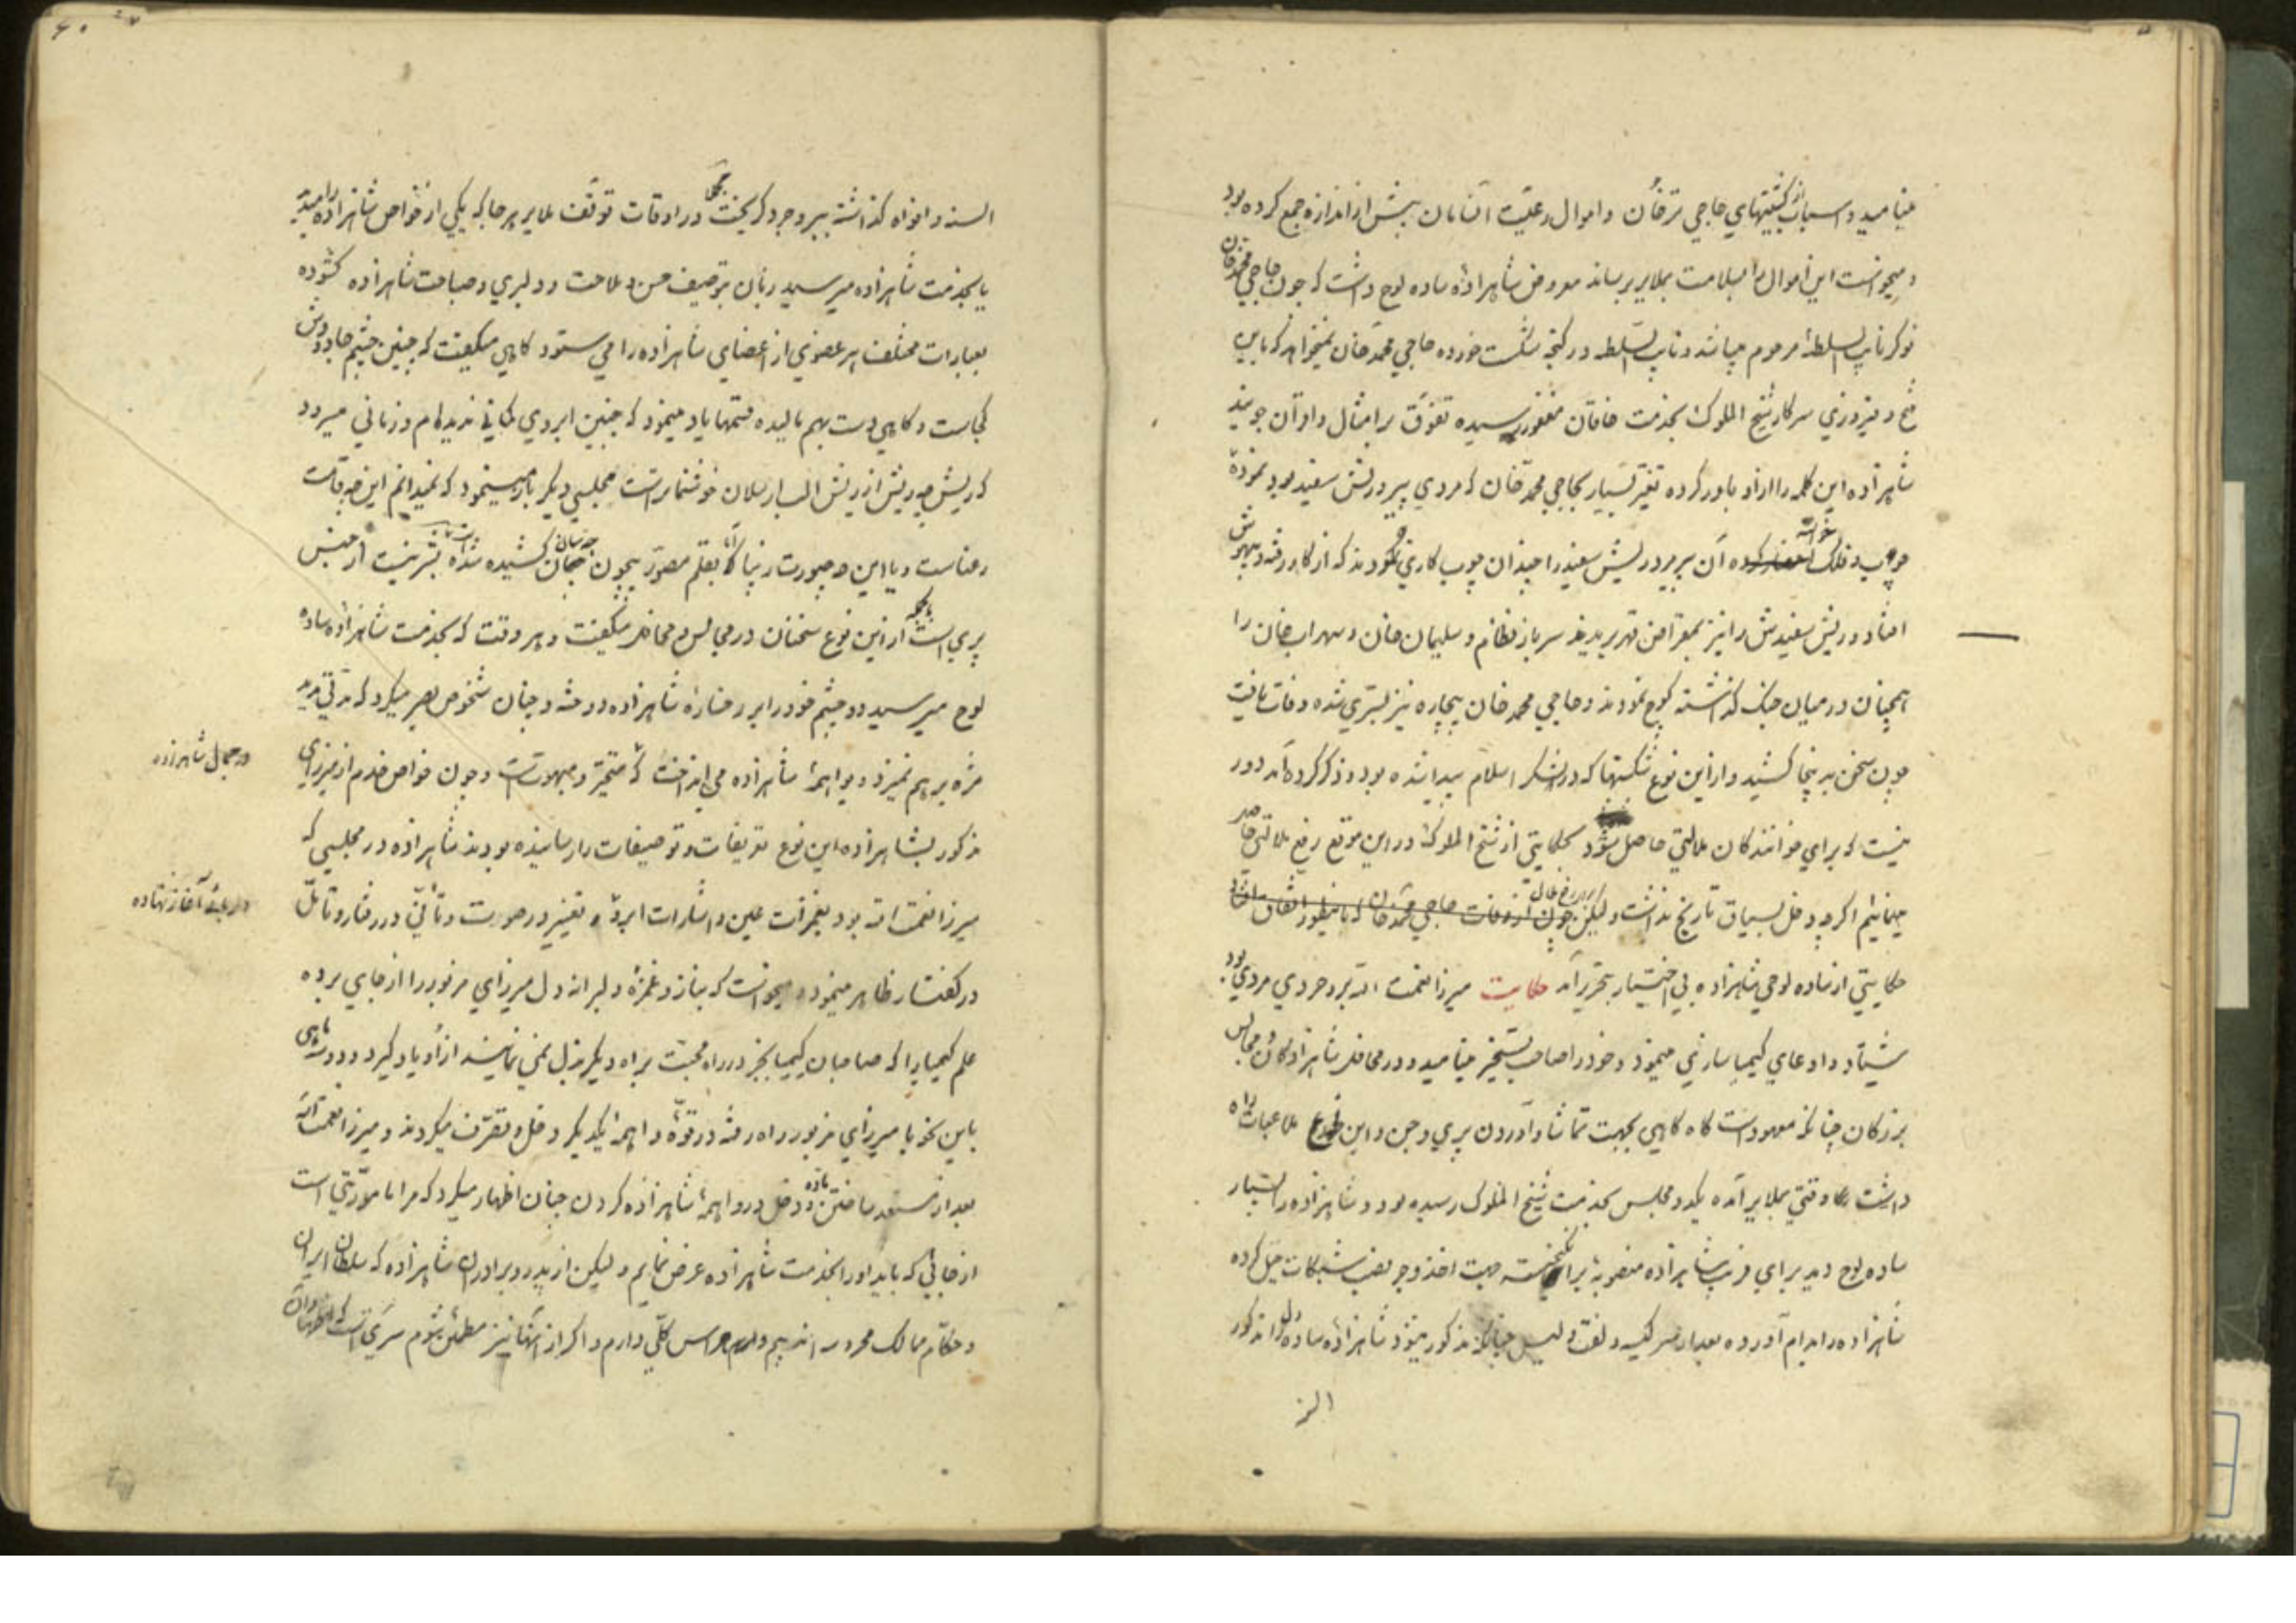 مینامید و اسباب کشتیهای حاجی ترخان و اموال رعیت آنسامان بیش از اندازه جمع کرده بود
و میخواست این اموال را بسلامت بملایر برساند معروض شاهزادهٔ ساده لوح داشت که چون حاجی محمد خان
نوکر نایب السلطنهٔ مرحوم میباشد و نایب السلطنه در گنجه شکست خورده حاجی محمد خان نمیخواهد که باین
فتح و فیروزی سرکار شیخ الملوک بخدمت خاقان مغفور رسیده تفوق بر امثال و اقران جویند
شاهزاده این کلمه را از او باور کرده تغیر بسیار بحاجی محمد خان که مردی پیر و ریش سفید بود نموده
چوب و فلک خواسته آن پیر مرد ریش سفید را چندان چوب کاری نمودند که از کار رفته و بیهوش
افتاد و ریش سفیدش را نیز بمقراض قهر بریدند سرباز نظام و سلیمان خان و سهراب خان را
همچنان در میان جنگ گذاشته کوچ نمودند و حاجی محمد خان بیچاره نیز بستری شده وفات یافت
چون سخن بدینجا کشید و از این نوع شکستها که در لشکر اسلام پیدا شده بود و ذکر کرده آمد دور
نیست که برای خوانندگان ملالتی حاصل شود بحکایتی از شیخ الملوک در این موقع رفع ملالتی
مینمائیم اگرچه دخل بسیاق تاریخ نداشت ولیکن چون از وفات حاجی محمد خان که باینطور اتفاق افتاد
حکایتی از ساده لوحی شاهزاده بی اختیار بتحریر آمد حکایت میرزا نعمت الله بروجردی مردی بود
شیاد و ادعای کیمیا سازی مینمود و خود را صاحب تسخیر مینامید و در محافل شاهزادگان و مجالس
بزرگان چنانکه معهود است گاه گاهی بجهت تماشا و آوردن پری و جن و این نوع ملاعبات راه
داشت وقتی بملایر آمده یکدو مجلس بخدمت شیخ الملوک رسیده بود و شاهزاده را بسیار
ساده لوح دید برای فریب شاهزاده منصوبهٔ برانگیخته جهت اخذ وجر نصب شبکات حیل کرده
شاهزاده را بدام آورده بعد از سرکیسه و لفت و لیس چنانکه مذکور میشود شاهزادهٔ ساده دل را مذکور
السنه و افواه گذاشته ببروجرد گریخت در اوقات توقف ملایر هر جا که یکی از خواص شاهزاده را میدید
یا بخدمت شاهزاده میرسید زبان بتوصیف حسن و ملاحت و دلبری و صباحت شاهزاده گشوده
بعبارات مختلف هر عضوی از اعضای شاهزاده را می ستود گاهی میگفت که چنین چشم جادووش
کجاست و گاهی دست بهم مالیده قسمها یاد مینمود که چنین ابروی کمانی ندیده‌ام و زمانی میرود
که ریش چه ریش از ریش الب ارسلان خوشنماتر است بمجلسی دیگر باز میستمود که نمیدانم این چه قامت
رعناست و یا این چه صورت زیبا گویا بقلم مصور بیچون چنان کشیده شده بشر نیست از جنس
پری است بالجمله از این نوع سخنان در مجالس و محافل میگفت و هر وقت که بخدمت شاهزاده ساده
لوح میرسید دو چشم خود را بر رخسارهٔ شاهزاده دوخته و چنان شخوص بصر میکرد که مدتی مدید
مژه بر هم نمیزد و بواهمهٔ شاهزاده می انداخت که متحیر و مبهوتست و چون خواص خدم از میرزای
در جمال شاهزاده
مذکور بشاهزاده این نوع تعریفات و توصیفات را رسانیده بودند شاهزاده در مجلسی که
میرزا نعمت الله بود بغمزات عین و اشارات ابرو و تغییر در صورت و تأنی در رفتار و تأمل
در گفتار ظاهر مینمود و میخواست که بناز و غمزهٔ دلبرانه دل میرزای مزبور را از جای برده
علم کیمیا را که صاحبان کیمیا بجز در راه محبت براه دیگر بذل نمی نمایند از او یاد گیرد و دو سه ماهی
باین نحو با میرزای مزبور راه رفته در قوهٔ واهمهٔ یکدیگر دخل و تصرف میکردند و میرزا نعمت الله
بعد از مستعد ساختن ماده و دخل در واهمهٔ شاهزاده کردن چنان اظهار میکرد که مرا ماموریتی است
از جائی که باید او را بخدمت شاهزاده عرض نمایم ولیکن از پدر و برادران شاهزاده که سلطان ایران
و حکام ممالک محروسه اند بیم و هراس کلی دارم و اگر از آنها نیز مطمئن شوم سری است